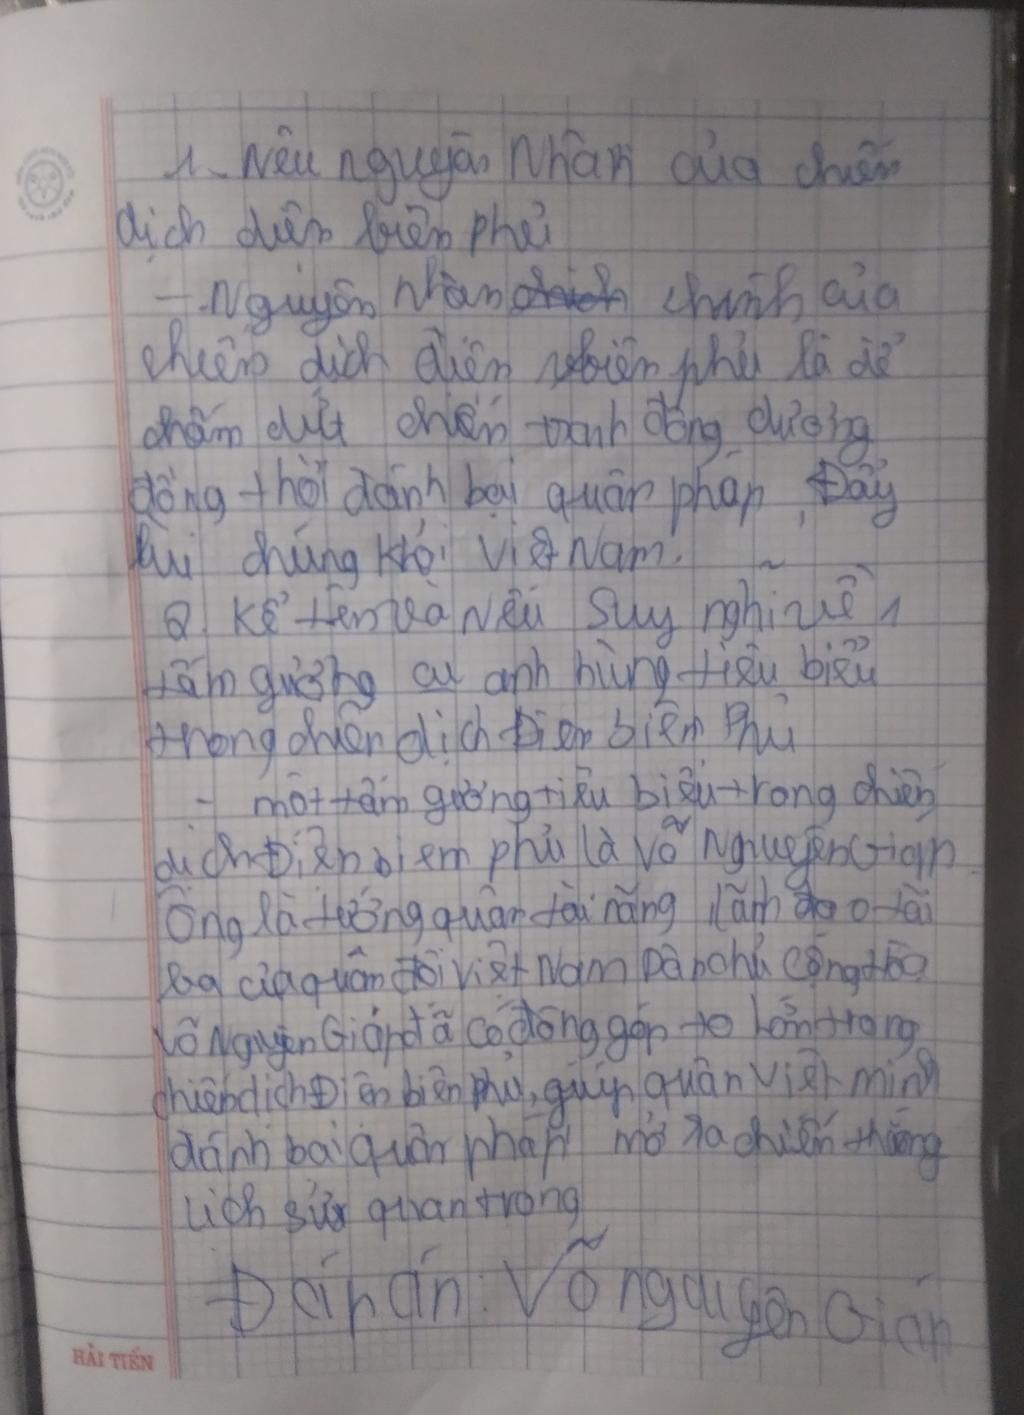 1. Nêu nguyên nhân của chiến
dịch điên biên phủ
- Nguyên nhân chính của
chiến dịch điên biên phủ là để
chấm dứt chiến tranh đông dương
đồng thời đánh bại quân pháp, Đẩy
lùi chúng khỏi Việt Nam.
2. Kể tên và Nêu Suy nghĩ về 1
tấm gương anh hùng tiêu biểu
trong chiến dịch Điên biên Phủ
- một tấm gương tiêu biểu trong chiến
dịch Điên biem phủ là Võ Nguyên Giáp
Ông là tướng quân tài năng lãnh đạo tài
ba của quân đội Việt Nam Dân chủ Cộng hòa
Võ Nguyên Giáp đã có đóng góp to lớn trong
chiến dịch Điên biên phủ, giúp quân Việt minh
đánh bại quân pháp mở ra chiến thắng
lịch sử quan trọng
Đáp án: Võ nguyên Giáp
HẢI TIẾN